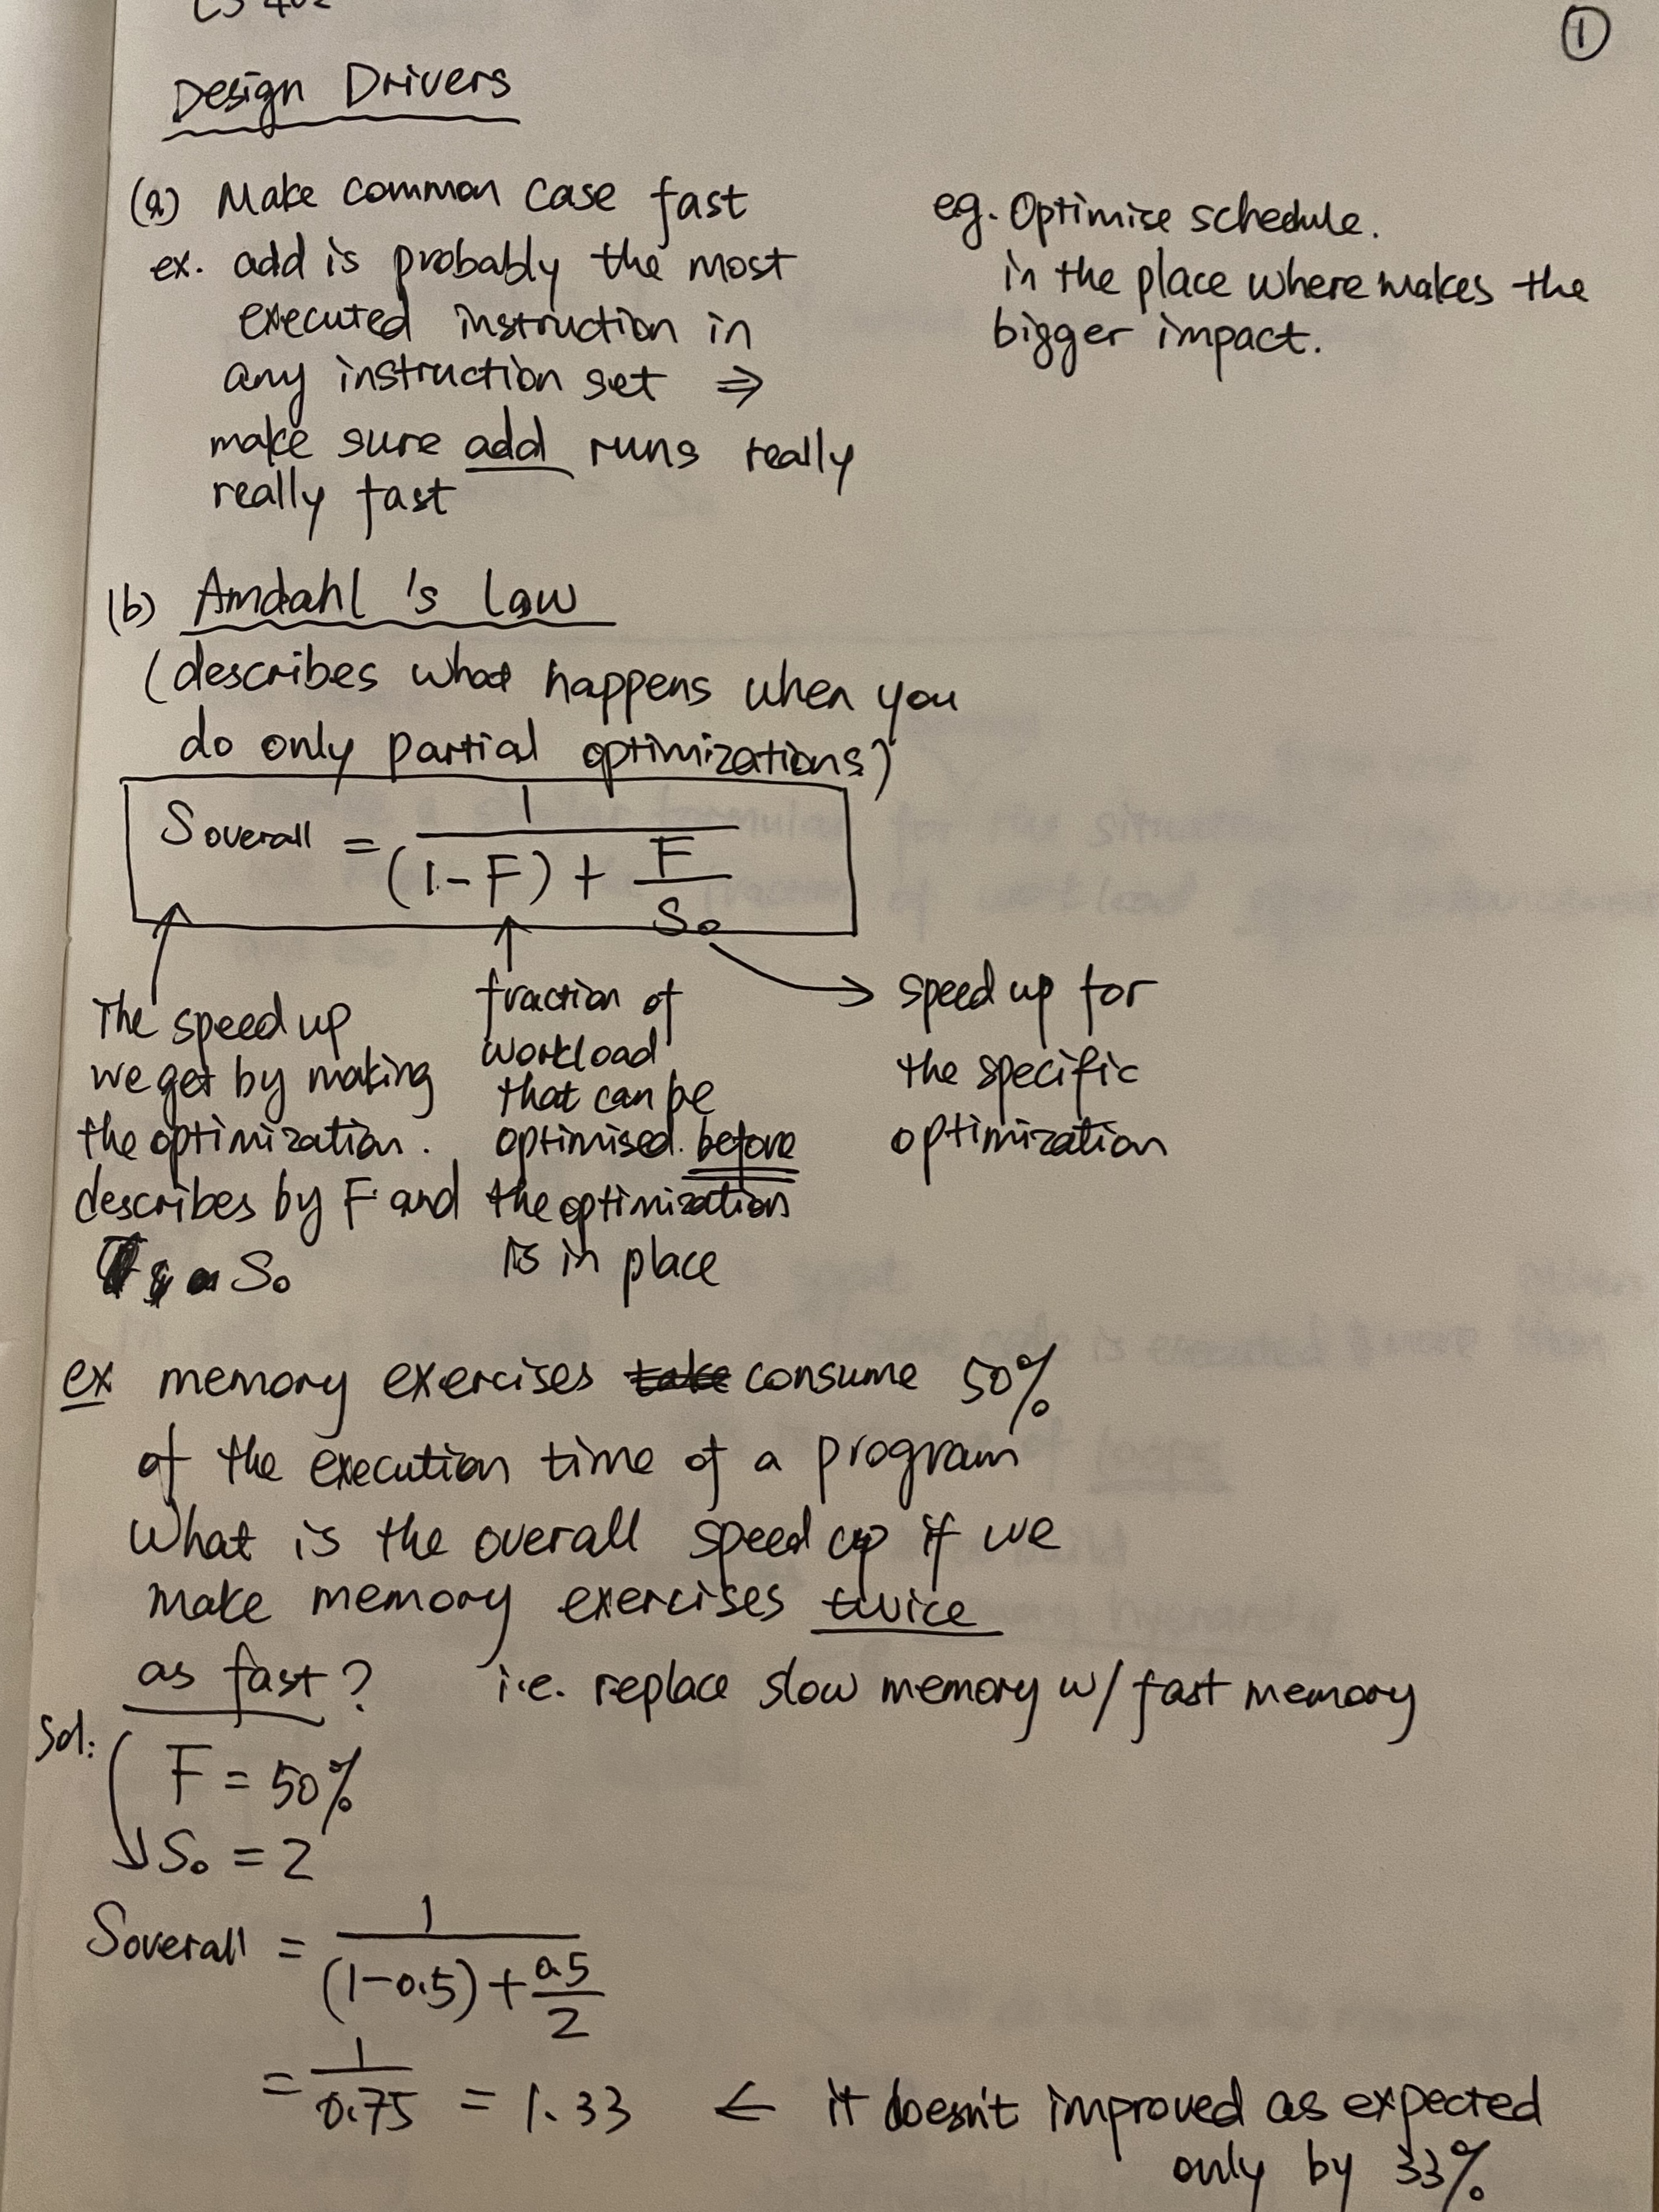 CS 402
①
Design Drivers
(a) Make common case fast
ex. add is probably the most
executed instruction in
any instruction set ⇒
make sure add runs really
really fast
eg. Optimise schedule.
in the place where makes the
bigger impact.
(b) Amdahl's law
(describes what happens when you
do only partial optimizations)
Soverall = 1 / ((1-F) + F/So)
The speed up
we get by making
the optimization.
describes by F and
So
fraction of
workload
that can be
optimised. before
the optimization
is in place
→ speed up for
the specific
optimization
ex memory exercises take consume 50%
of the execution time of a program
What is the overall speed up if we
make memory exercises twice
as fast? i.e. replace slow memory w/ fast memory
Sol:
F = 50%
So = 2
Soverall = 1 / ((1-0.5) + 0.5/2)
= 1/0.75 = 1.33 ← it doesn't improved as expected
only by 33%